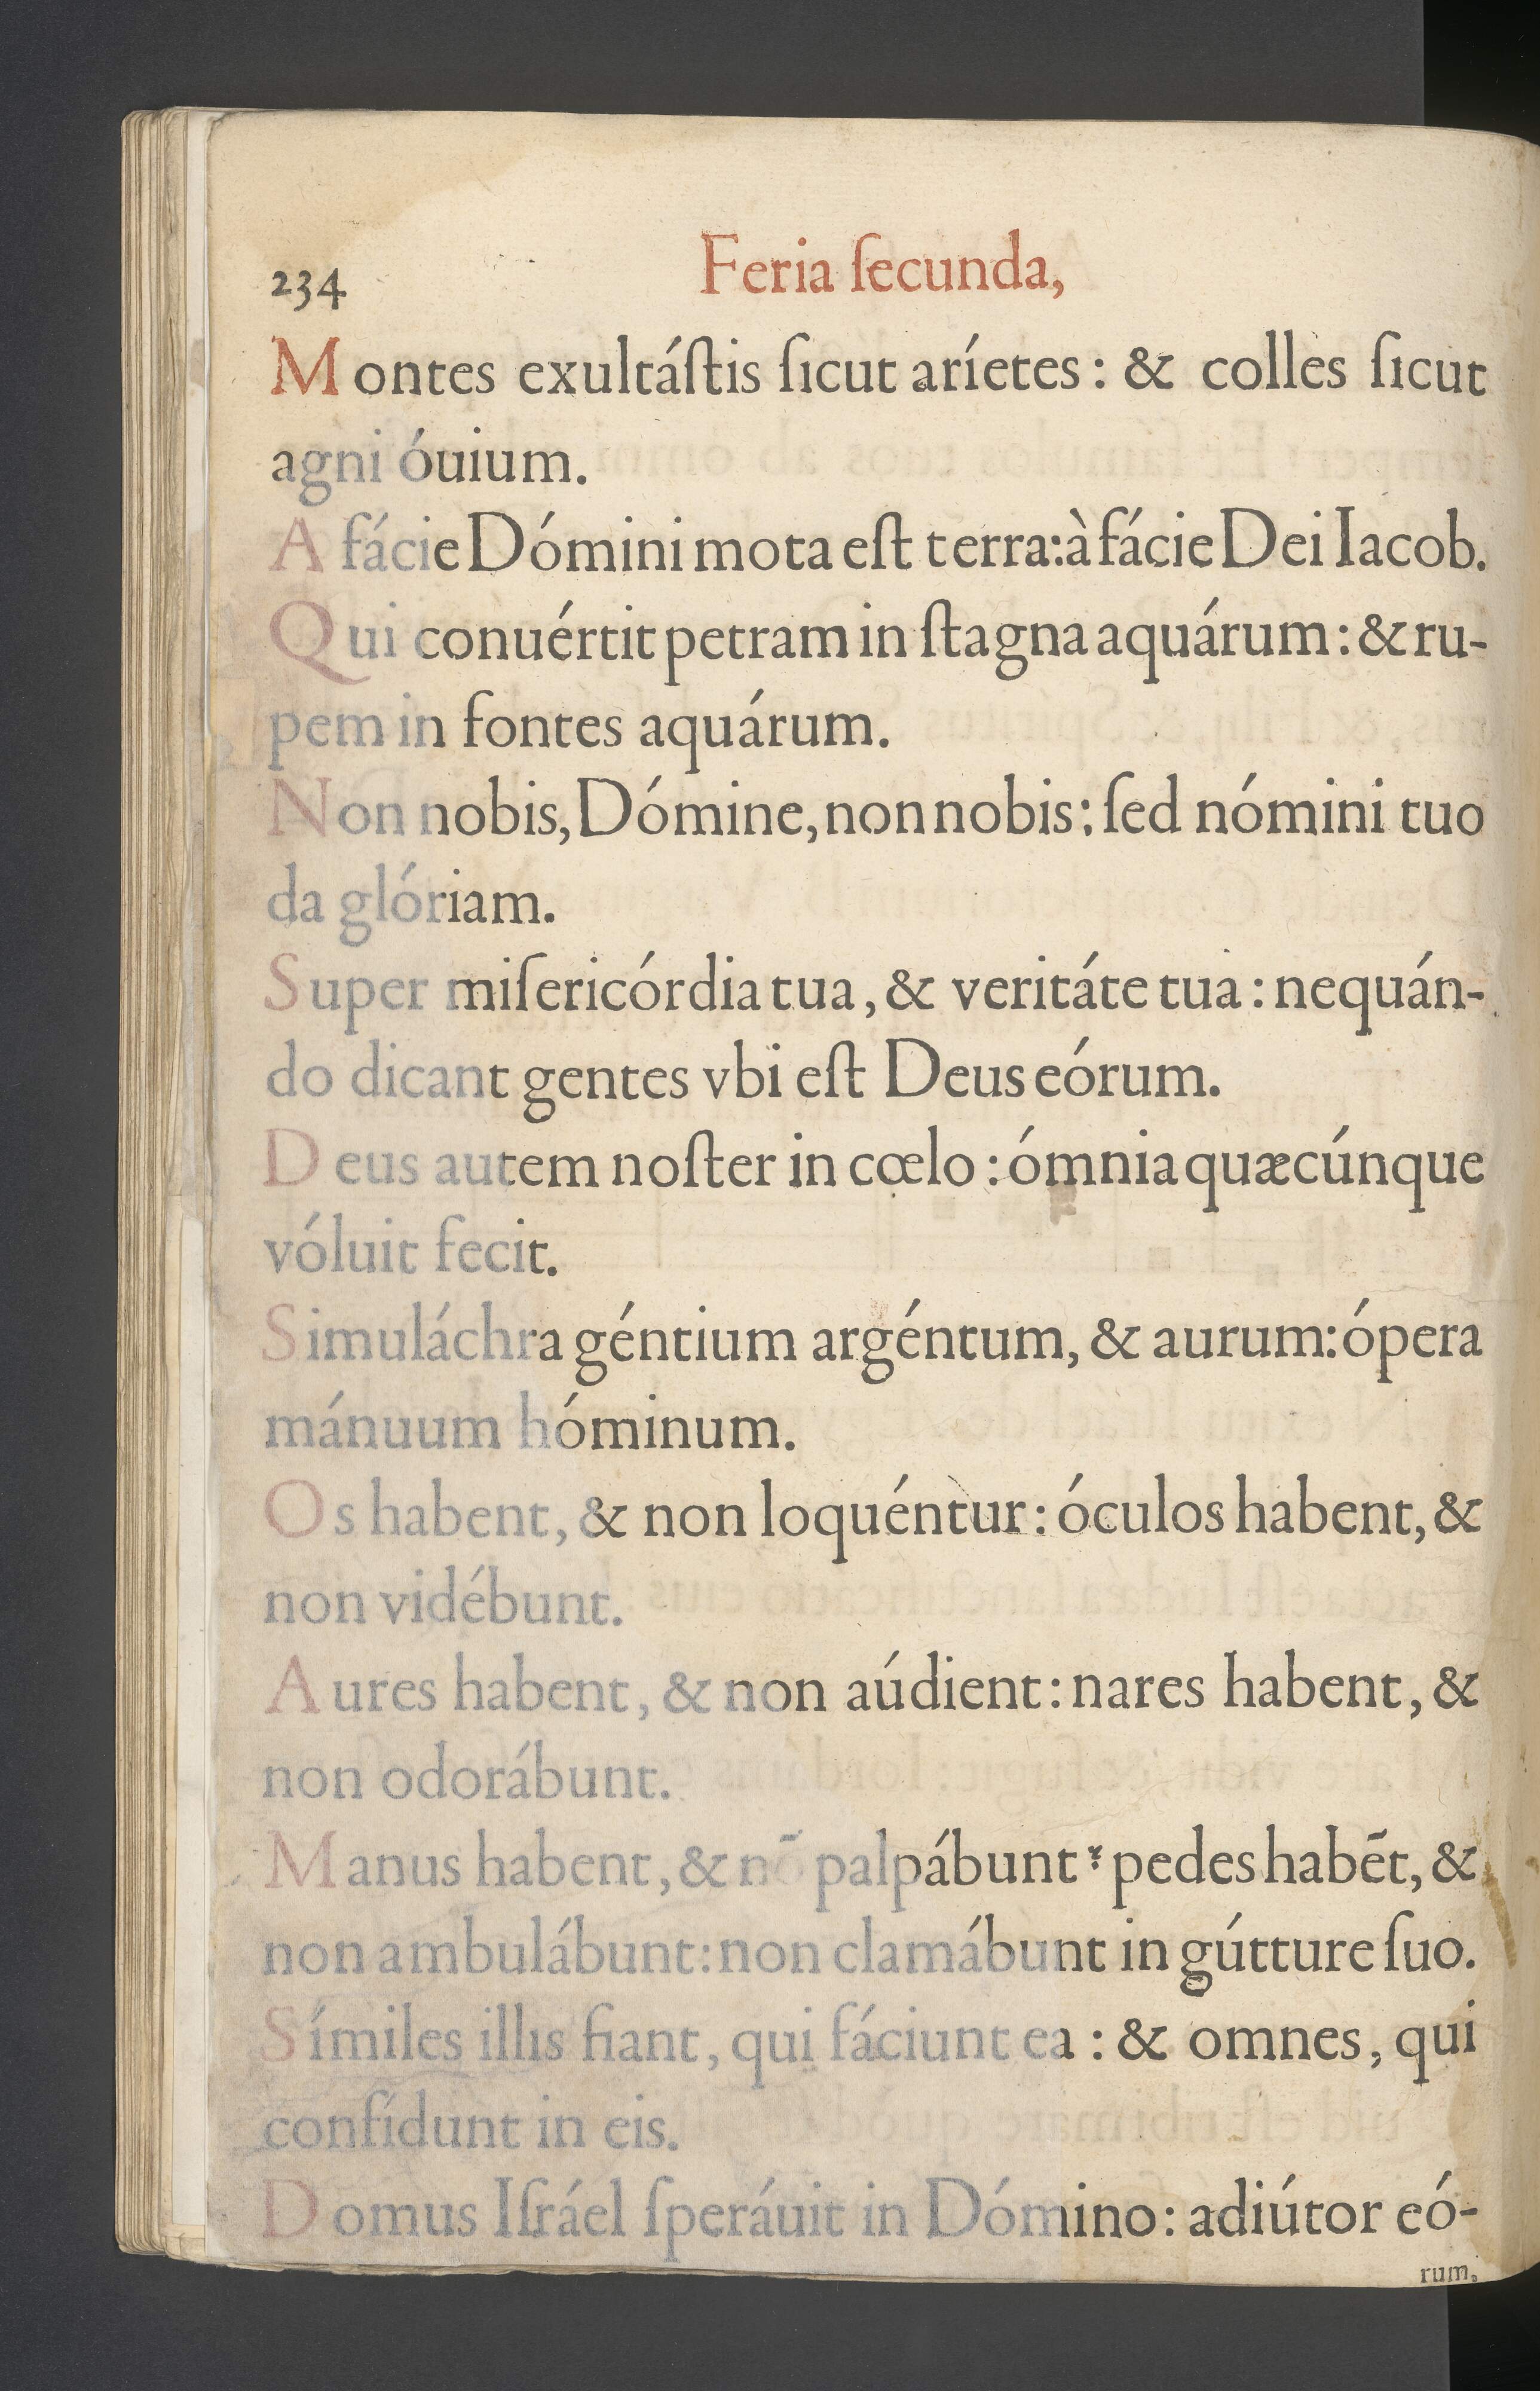 234
Feria ſecunda,
Montes exultáſtis ſicut aríetes : & colles ſicut
agni óuium.
A fácie Dómini mota eſt terra: à fácie Dei Iacob.
Qui conuértit petram in ſtagna aquárum : & ru-
pem in fontes aquárum.
Non nobis, Dómine, non nobis: ſed nómini tuo
da glóriam.
Super miſericórdia tua, & veritáte tua : nequán-
do dicant gentes vbi eſt Deus eórum.
Deus autem noſter in cœlo : ómnia quæcúnque
vóluit fecit.
Simuláchra géntium argéntum, & aurum: ópera
mánuum hóminum.
Os habent, & non loquéntur : óculos habent, &
non vidébunt.
Aures habent, & non aúdient : nares habent, &
non odorábunt.
Manus habent, & nō palpábunt : pedes habēt, &
non ambulábunt: non clamábunt in gútture ſuo.
Símiles illis fiant, qui fáciunt ea : & omnes, qui
confídunt in eis.
Domus Iſráel ſperáuit in Dómino: adiútor eó-
rum.